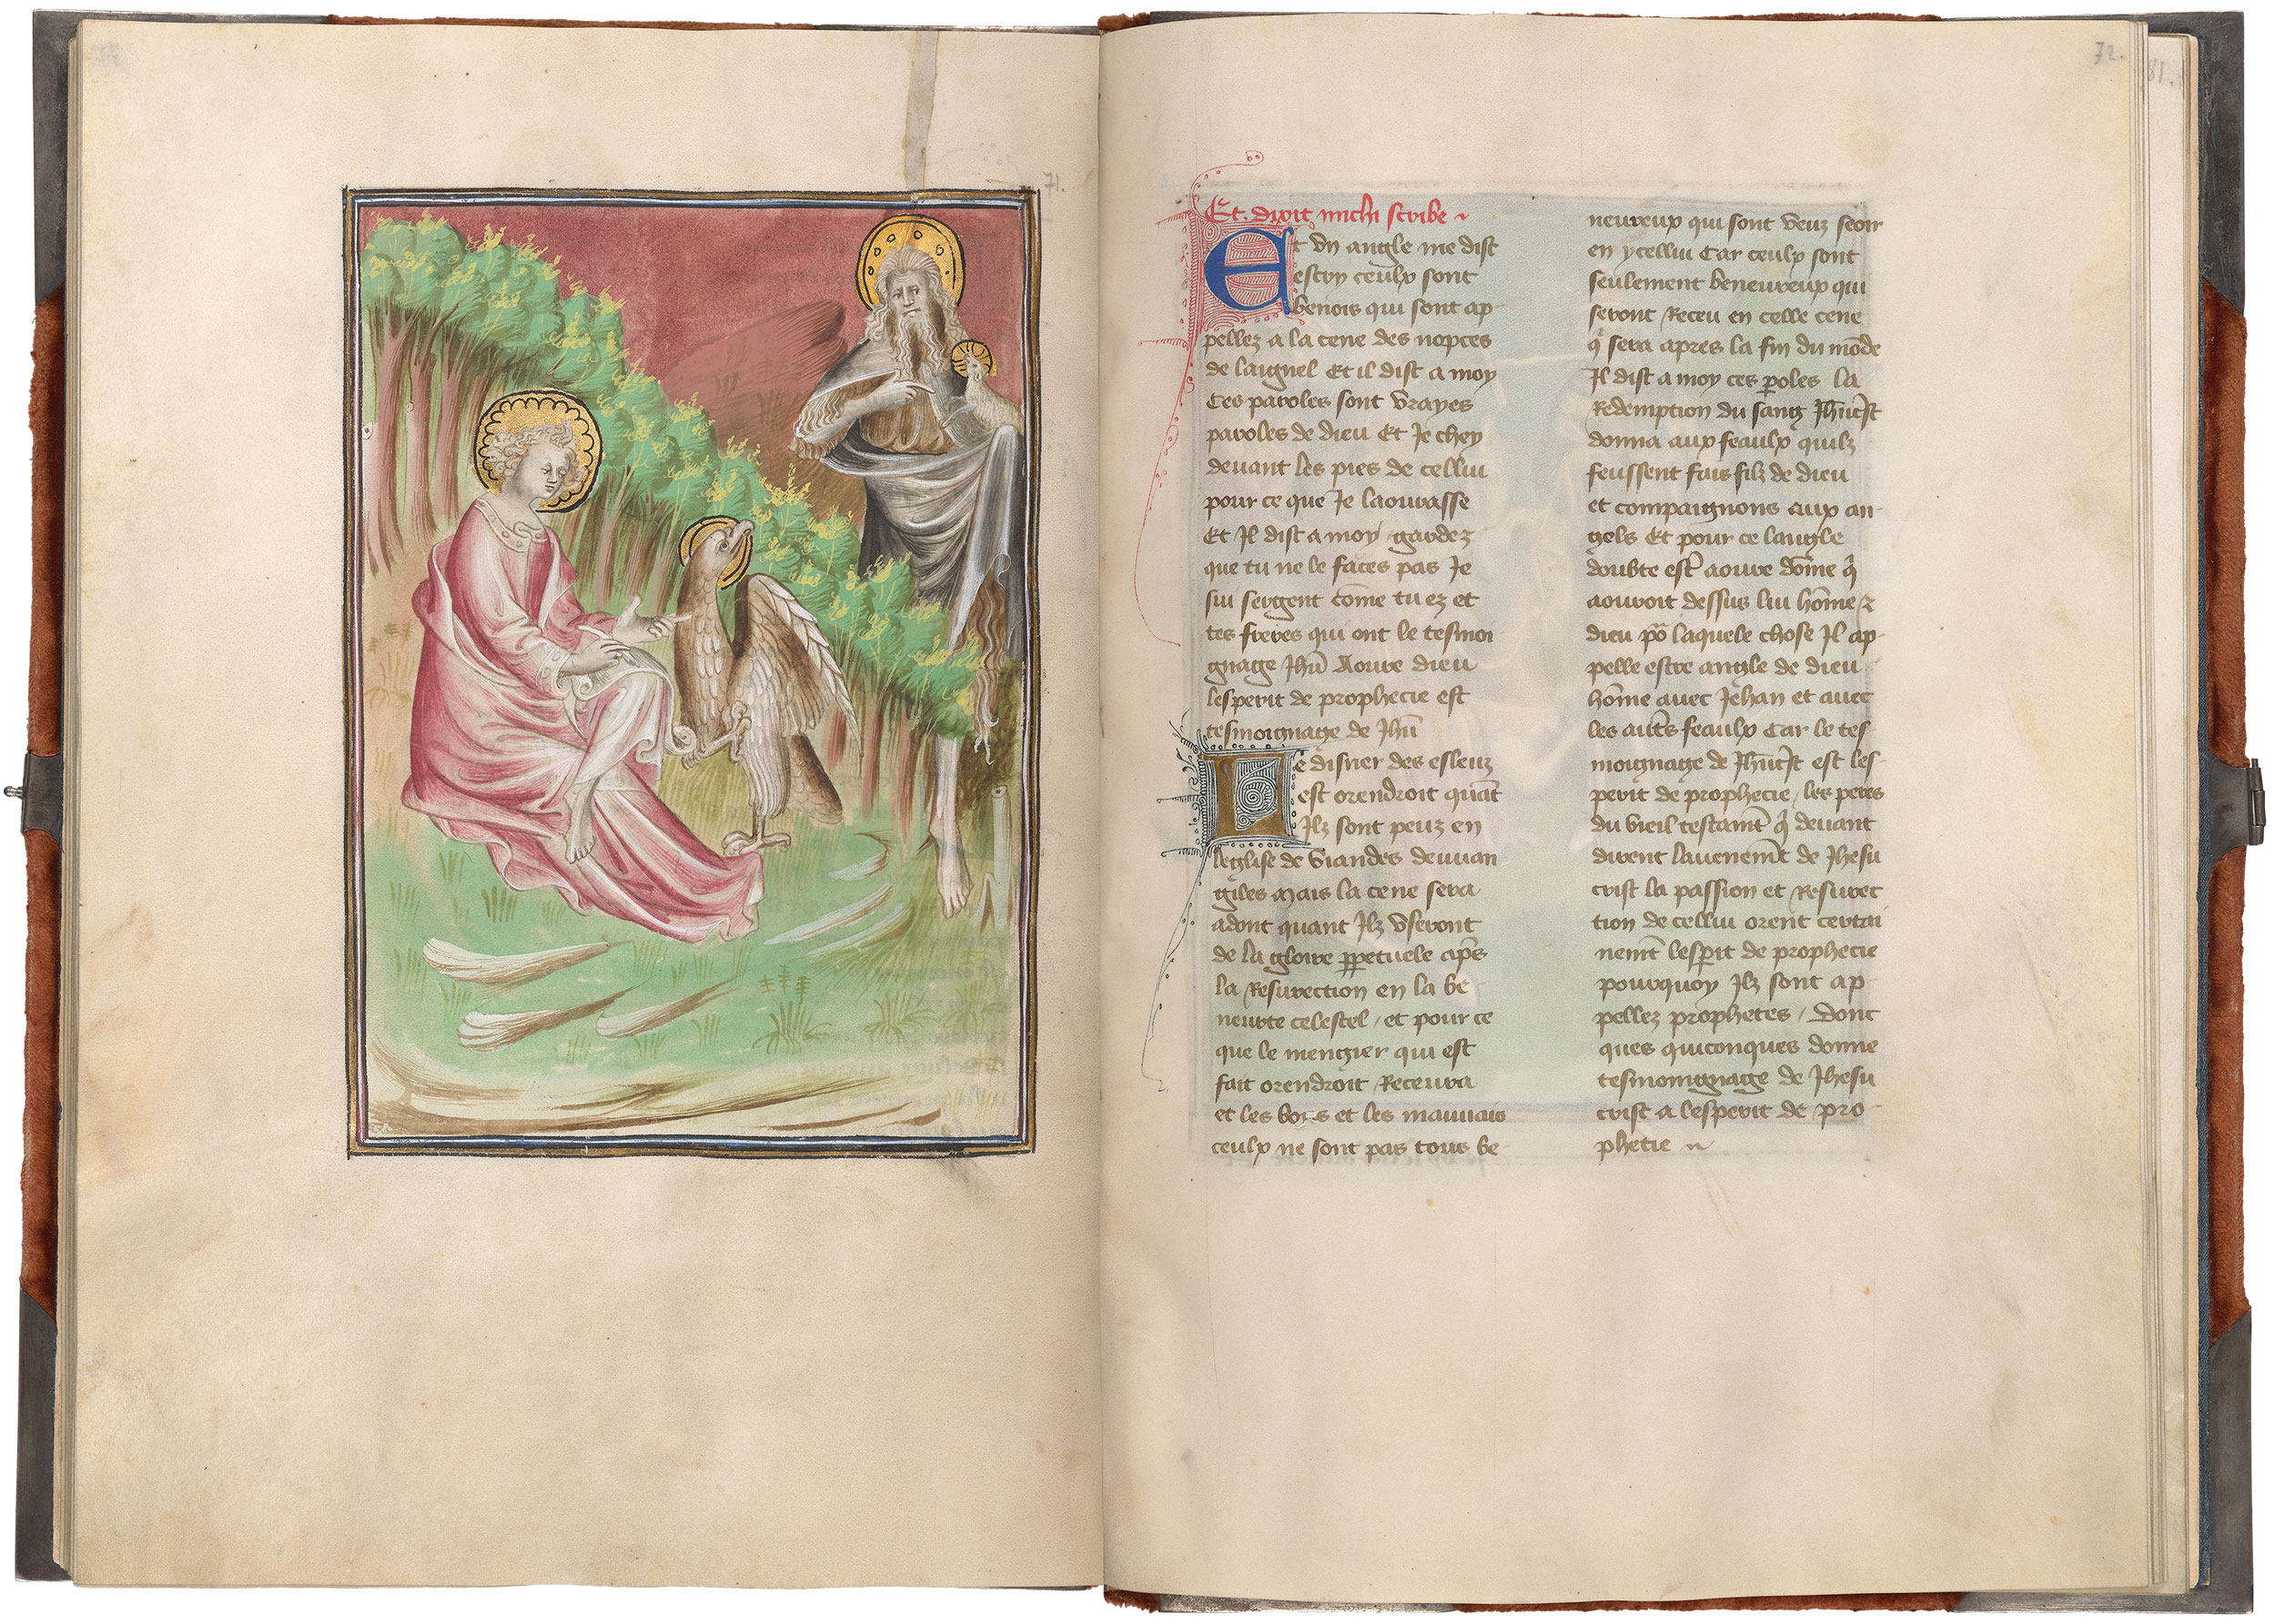 71.
72.
81.
Et dixit michi scribe
Et vn angle me dist
escry ceulx sont
benois qui sont ap-
pellez a la cene des nopces
de laignel Et il dist a moy
Ces paroles sont vrayes
paroles de dieu Et Je chey
deuant les pies de cellui
pour ce que Je laourasse
Et Jl dist a moy gardez
que tu ne le faces pas Je
sui sergent cōme tu ez et
tes freres qui ont le tesmoi
gnage Jhū Aoure dieu
lesperit de prophecie est
tesmoignage de Jhū
Le disner des esleuz
est orendroit quāt
Jlz sont peuz en
leglise de viandes deuuan
giles Mais la cene sera
adont quant Jlz vseront
de la gloire ꝑpetuele ap̄s
la Resurection en la be
neurte celestel / et pour ce
que le mengier qui est
fait orendroit Receura
et les bons et les mauuais
ceulx ne sont pas tous be-
neureux qui sont venz seoir
en ycellui Car ceulx sont
seulement beneureux qui
seront Receu en celle cene
q̄ sera apres la fin du mōde
Jl dist a moy ces ꝑoles la
Redemption du sang Jhūcrist
donna aux feaulx quilz
feussent fais filz de dieu
et compaignons aux an-
gels Et pour ce langle
doubte est̄ aoure dōme q̄
aouroit dessus lui hōme ⁊
dieu pō laquele chose Jl ap-
pelle estre angle de dieu
hōme auec Jehan et auec
les aut̄s feaulx Car le tes-
moignage de Jhūcrist est les-
perit de prophecie / les peres
du vieil testamt̄ q̄ deuant
dirent lauenemt̄ de Jhesu
crist la passion et Resurec
tion de cellui orent certai
nemt̄ lesꝑit de prophecie
pourquoy Jlz sont ap
pellez prophetes / Donc
ques quiconques donne
tesmoingnage de Jhesu
crist a lesperit de pro-
phecie